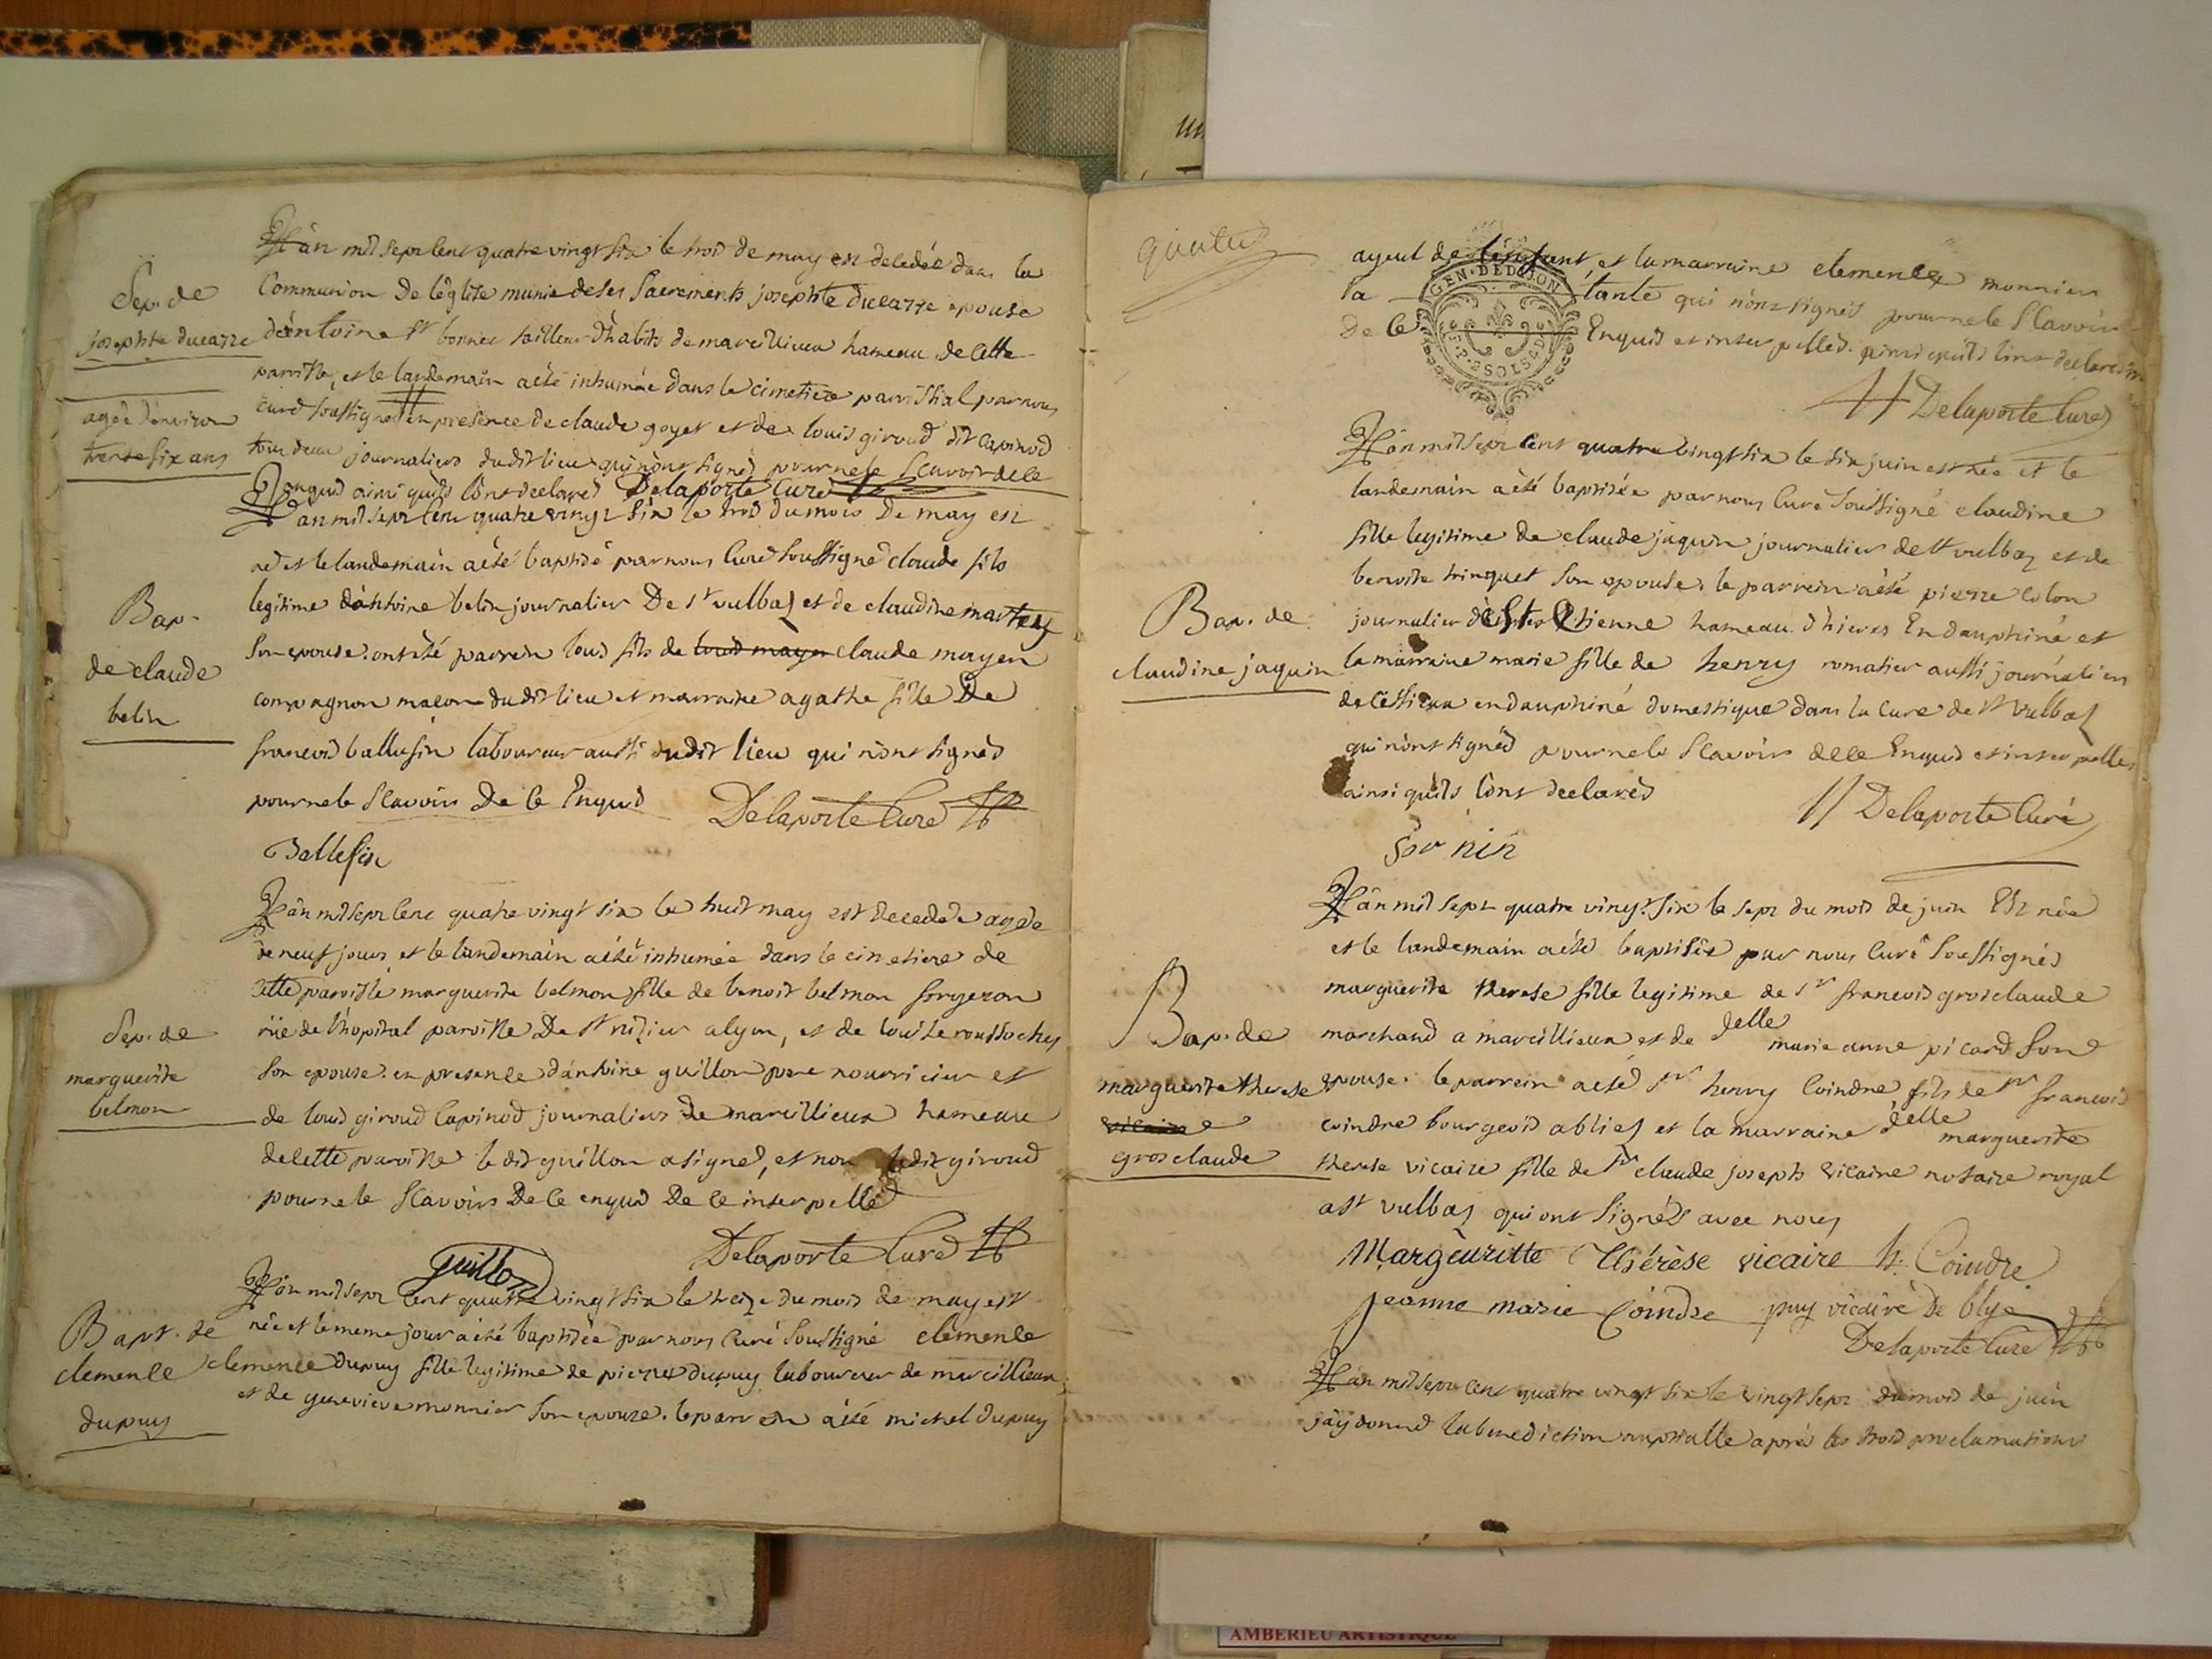 Sep. de
josephte ducarre
agée d'environ
trente six ans
L'àn mil sept cent quatre vingt six le trois de may est decedée dans la
Communion De l'eglise munie de ses Sacrements josephte ducarre epouse
d'àntoine St bonnet tailleur d'habits de marcillieux hameau de cette
paroisse, et le landemain aété inhumée dans le cimetiere paroissial par nous
curé soussigné en presence de claude goyet et de louis giroud dit capinod
tous deux journaliers dudit lieu qui n'ont signés pour ne le scavoir de ce
Enquis ainsi quils l'ont declarés Delaporte Curé
Bap.
de claude
belin
L'àn mil sept cent quatre vingt six le trois du mois De may est
né et le landemain aété baptisé par nous Curé Soussigné claude fils
legitime d'àntoine belin journalier De St vulbas et de claudine martin
Son epouse. ont été parrein louis fils de louis mayen claude mayen
compagnon maçon dudit lieu et marraine agathe fille De
francois ballusin laboureur aussi dudit lieu qui n'ont signés
pour ne le Scavoir De ce Enquis Delaporte Curé
Bellefin
Sep. de
marguerite
belmon
L'àn mil sept cent quatre vingt six le huit may est decedée agée
de neuf jours, et le landemain aété inhumée dans le cimetiere de
cette paroisse marguerite belmon fille de benoit belmon forgeron
rüe de l'hopital paroisse De St nizier alyon, et de louise
Son epouse. en presence d'àntoine guillon pere nourricier et
de louis giroud Capinod journaliers de marcillieux hameau
de cette paroisse le dit guillon a signé, et non ledit giroud
pour ne le Scavoir De ce enquis De ce interpellé
Delaporte Curé
guillon
Bapt. de
clemence
dupuy
L'àn mil sept cent quatre vingt six le treize du mois de may est
née et le meme jour a été baptisée par nous Curé Soussigné clémence
clemence dupuy fille legitime de pierre dupuy laboureur de marcillieux
et de genevieve monnier son epouse. le parrein àété michel dupuy
ayeul de l'enfant, et la marraine clemence monnier
sa tante qui n'ont signés pour ne le Scavoir
De ce Enquis et interpellés. ainsi quils l'ont declarés
GEN. DE DIJON
Delaporte Curé
Bap. de
claudine jaquin
L'àn mil sept cent quatre vingt six le six juin est née et le
landemain aété baptisée par nous Curé Soussigné claudine
fille legitime de claude jaquin journalier de St vulbas et de
benoite trinquet son epouse. le parrein aété pierre colon
journalier de St Etienne hameau d'hieres En dauphiné et
la marraine marie fille de henry romatier aussi journalier
de Cessieux en dauphiné domestique dans la Cure de St vulbas
qui n'ont signés pour ne le Scavoir de ce Enquis et interpellés
ainsi quils l'ont declarés
Delaporte Curé
Sornin
Bap. de
marguerite therese
vicaire
grosclaude
L'àn mil sept quatre vingt six le sept du mois de juin Est née
et le landemain aété baptisée par nous Curé Soussignés
marguerite therese fille legitime de Sr francois grosclaude
marchand a marcillieux et de delle marie anne picard Son
epouse. le parrein aété Sr henry Coindre fils de Sr francois
coindre bourgeois a blies et la marraine delle marguerite
therese vicaire fille de Sr claude joseph vicaire notaire royal
a St vulbas qui ont Signés avec nous
Margèuritte Thérèse vicaire h. Coindre
jeanne marie Coindre puy vicaire De blye
Delaporte Curé
L'àn mil sept cent quatre vingt six le vingt sept du mois de juin
jày donné la benediction nuptialle après les trois proclamations
AMBERIEU ARTISTIQUE